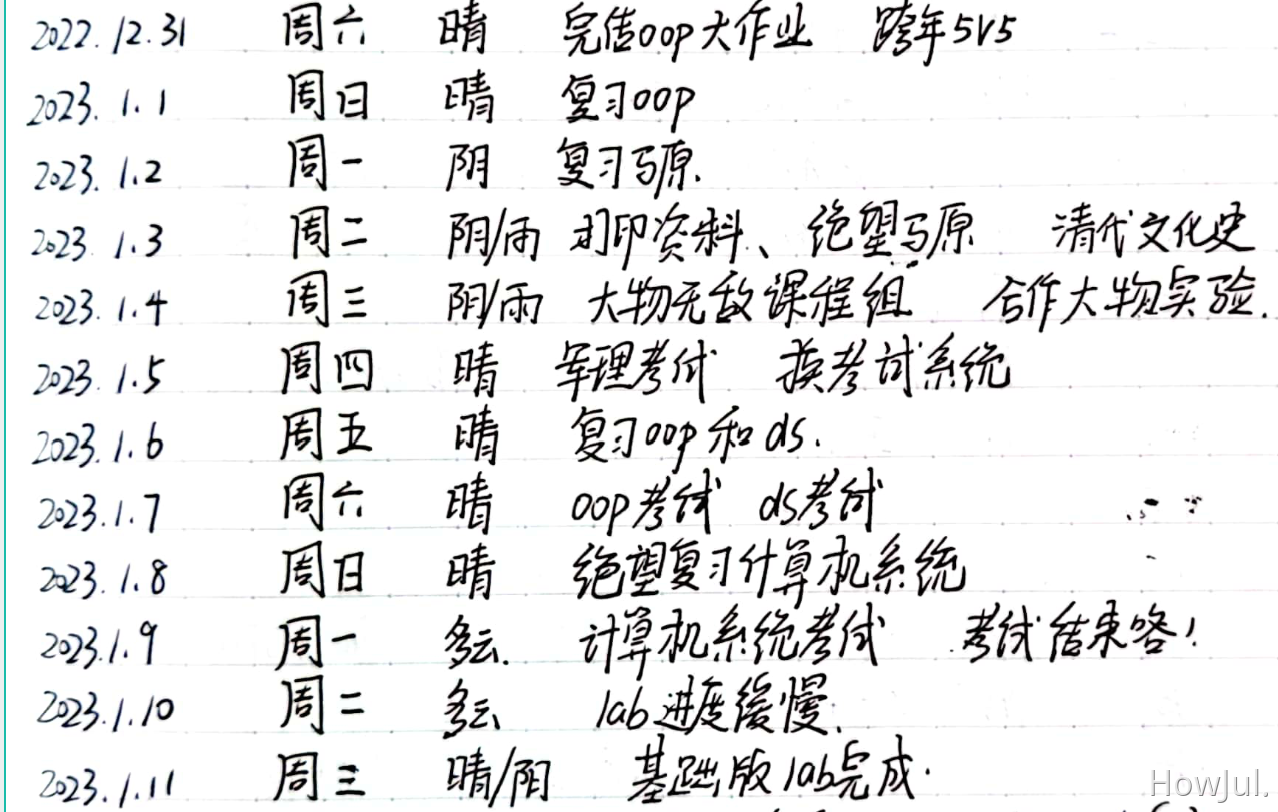 2022.12.31 周六 晴 完结oop大作业 跨年5v5
2023.1.1 周日 晴 复习oop
2023.1.2 周一 阴 复习马原.
2023.1.3 周二 阴/雨 打印资料、绝望马原 清代文化史
2023.1.4 周三 阴/雨 大物无敌课程组 合作大物实验.
2023.1.5 周四 晴 军理考试 换考试系统
2023.1.6 周五 晴 复习oop和ds.
2023.1.7 周六 晴 oop考试 ds考试
2023.1.8 周日 晴 绝望复习计算机系统
2023.1.9 周一 多云. 计算机系统考试 考试结束咯!
2023.1.10 周二 多云 lab进度缓慢.
2023.1.11 周三 晴/阴 基础版lab完成.
HowJul.